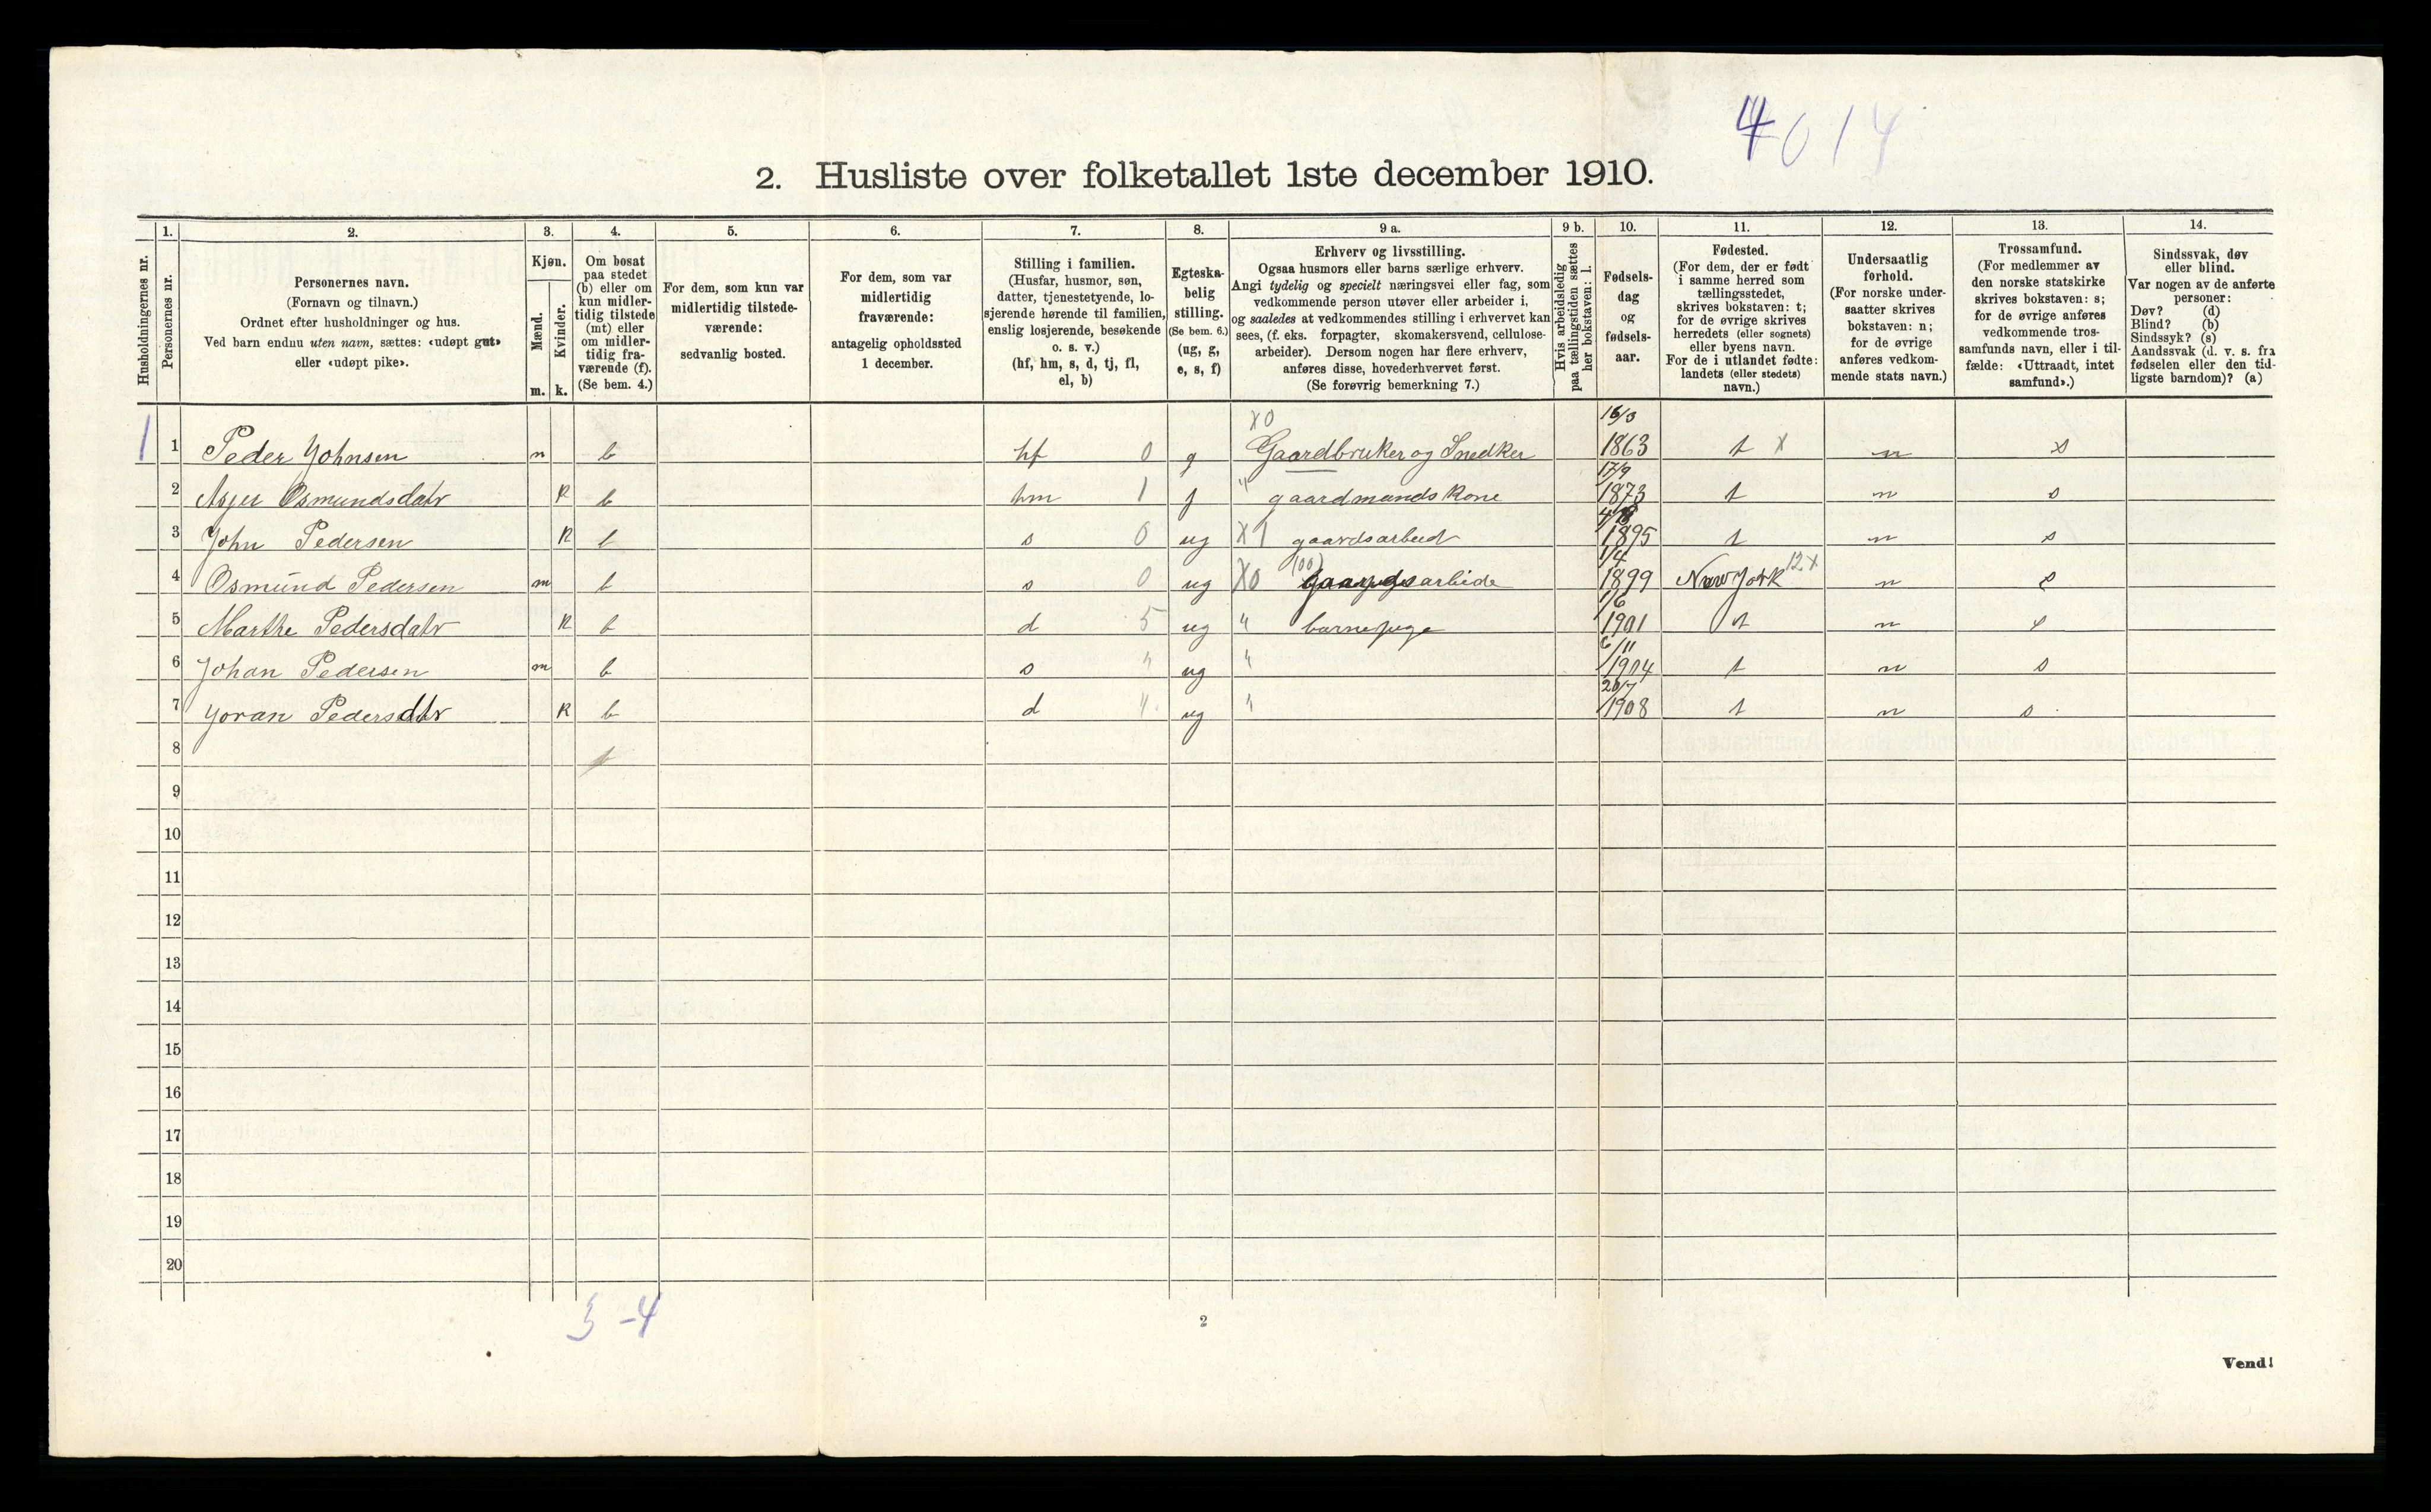 4014
2. Husliste over folketallet 1ste december 1910.
Husholdningernes nr.
1.
Personernes nr.
2.
Personernes navn.
(Fornavn og tilnavn.)
Ordnet efter husholdninger og hus.
Ved barn endnu uten navn, sættes: «udøpt gut»
eller «udøpt pike».
3.
Kjøn.
Mænd.
Kvinder.
m. k.
4.
Om bosat
paa stedet
(b) eller om
kun midler-
tidig tilstede
(mt) eller
om midler-
tidig fra-
værende (f).
(Se bem. 4.)
5.
For dem, som kun var
midlertidig tilstede-
værende:
sedvanlig bosted.
6.
For dem, som var
midlertidig
fraværende:
antagelig opholdssted
1 december.
7.
Stilling i familien.
(Husfar, husmor, søn,
datter, tjenestetyende, lo-
sjerende hørende til familien,
enslig losjerende, besøkende
o. s. v.)
(hf, hm, s, d, tj, fl,
el, b)
8.
Egteska-
belig
stilling.
(Se bem. 6.)
(ug, g,
e, s, f)
9 a.
Erhverv og livsstilling.
Ogsaa husmors eller barns særlige erhverv.
Angi tydelig og specielt næringsvei eller fag, som
vedkommende person utøver eller arbeider i,
og saaledes at vedkommendes stilling i erhvervet kan
sees, (f. eks. forpagter, skomakersvend, cellulose-
arbeider). Dersom nogen har flere erhverv,
anføres disse, hovederhvervet først.
(Se forøvrig bemerkning 7.)
9 b.
Hvis arbeidsledig
paa tællingstiden sættes
her bokstaven: l.
10.
Fødsels-
dag
og
fødsels-
aar.
11.
Fødested.
(For dem, der er født
i samme herred som
tællingsstedet,
skrives bokstaven: t;
for de øvrige skrives
herredets (eller sognets)
eller byens navn.
For de i utlandet fødte:
landets (eller stedets)
navn.)
12.
Undersaatlig
forhold.
(For norske under-
saatter skrives
bokstaven: n;
for de øvrige
anføres vedkom-
mende stats navn.)
13.
Trossamfund.
(For medlemmer av
den norske statskirke
skrives bokstaven: s;
for de øvrige anføres
vedkommende tros-
samfunds navn, eller i til-
fælde: «Uttraadt, intet
samfund».)
14.
Sindssvak, døv
eller blind.
Var nogen av de anførte
personer:
Døv? (d)
Blind? (b)
Sindssyk? (s)
Aandssvak (d. v. s. fra
fødselen eller den tid-
ligste barndom)? (a)
X0 
1 1 Peder Johnsen m b hf 0 g Gaardbruker og Snedker 1863 t X n s
2 Osmundsdatr k b hm 1 g " gaardmands kone 17/9 1873 t n s
3 John Pedersen k b s 0 ug X1 gaardsarbeid 1895 t n s
(00)
4 Osmund Pedersen m b s 0 ug X0 gaardsarbeide 1/4 1899 New York 12 X n s
5 Marthe Pedersdatr k b d 5 ug " barnepige 1/6 1901 t n s
6 Johan Pedersen m b s " ug " 6/11 1904 t n s
7 Joran Pedersdtr k b d " ug " 20/7 1908 t n s
8
9
10
11
12
13
14
15
16
17
18
19
20
3 - 4
2
Vend!